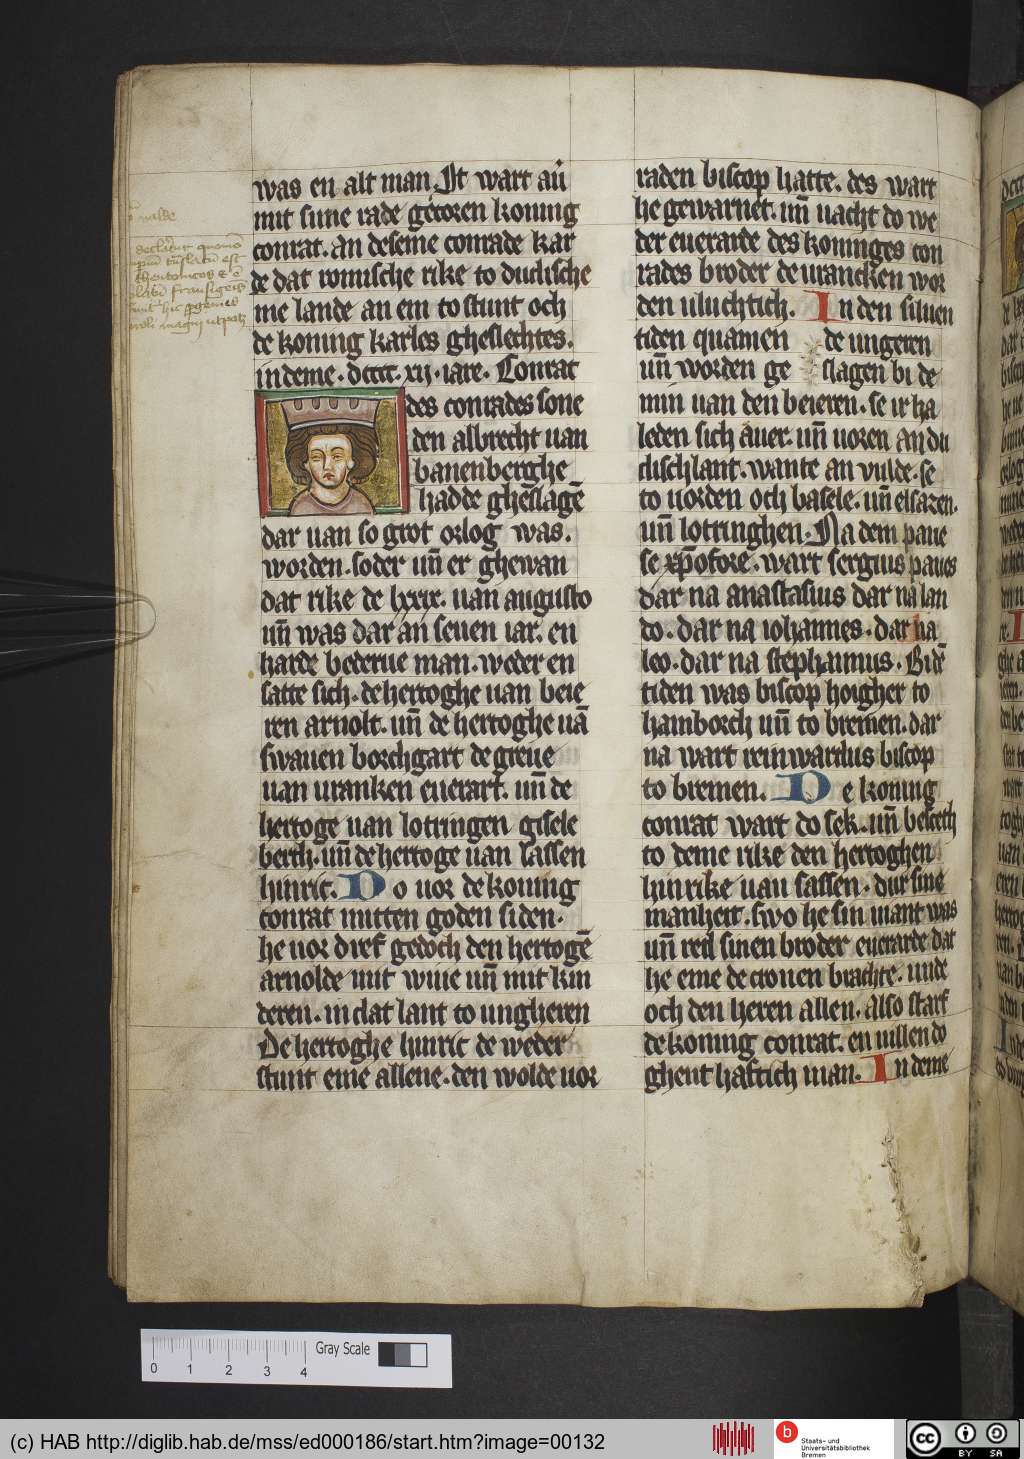 was en alt man. It wart au̇
mit sime rade gecoren koning
conrat. an deseme conrade kar
de dat romische rike to dudische
me lande an em to stunt och
de koning karles gheslechtes.
in deme. dcccc. xij. iare. Conrat
des conrades sone
den albrecht uan
bauenberghe
hadde gheslagē
dar uan so grot orlog was.
worden. soder uñ er ghewan
dat rike de lxxix. uan augusto
uñ was dar an seuen iar. en
harde bederue man. weder en
satte sich. de hertoghe uan beie
ren arnolt. uñ de hertoghe uā
swauen borchgart de greue
uan uranken euerart. uñ de
hertoge uan lotringen gisele
berth. uñ de hertoge uan sassen
hinric. Do uor de koning
conrat mitten goden siden.
he uor dref gedoch den hertogē
arnolde mit wiue uñ mit kin
deren. in dat lant to ungheren
De hertoghe hinric de weder
stunt eme allene. den wolde uor
raden biscop hatte. des wart
he gewarnet. uñ uacht do we
der euerarde des koninges con
rades broder de urancken wor
den uluchtich. In den siluen
tiden quamen de ungeren
uñ worden ge slagen bi de
min uan den beieren. se ir ha
leden sich auer. uñ uoren an du
dischlant. wante an vulde. se
to uorden och basele. uñ elsazen.
uñ lotringhen. Na dem paue
se xp̄ofore. wart sergius paues
dar na anastasius dar na lan
do. dar na iohannes. dar na
leo. dar na stephannus. Bi dē
tiden was biscop hoigher to
hamborch uñ to bremen. dar
na wart reinwardus biscop
to bremen. De koning
conrat wart do sek. uñ besceth
to deme rike den hertoghen
hinrike uan sassen. dur sine
manheit. swo he sin uiant was
uñ red sinen broder euerarde dat
he eme de cronen brachte. unde
och den heren allen. Also starf
de koning conrat. en uillen do
ghent haftich man. In deme
Gray Scale
0 1 2 3 4
(c) HAB http://diglib.hab.de/mss/ed000186/start.htm?image=00132
b
Staats- und
Universitätsbibliothek
Bremen
cc
BY SA